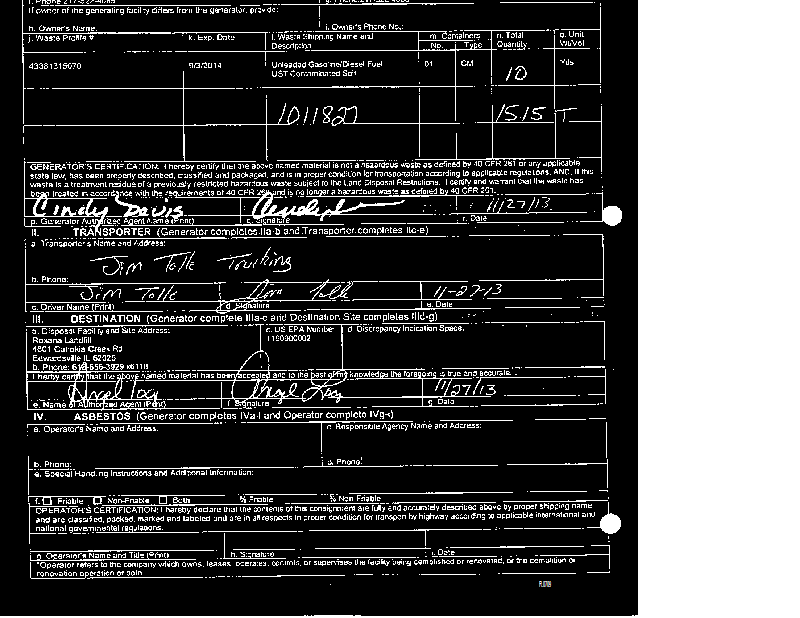 If owner of the generating facility differs from the generator, provide:
h. Owner's Name: i. Owner's Phone No.:
j. Waste Profile # k. Exp. Date l. Waste Shipping Name and Description m. Containers No. Type n. Total Quantity o. Unit Wt/Vol
9/3/2014 Unleaded Gasoline/Diesel Fuel UST Contaminated Soil 01 CM 10 Yds
1011827 15.15 T
GENERATOR'S CERTIFICATION: I hereby certify that the above named material is not a hazardous waste as defined by 40 CFR 261 or any applicable
state law, has been properly described, classified and packaged, and is in proper condition for transportation according to applicable regulations. AND, if this
waste is a treatment residue of a previously restricted hazardous waste subject to the Land Disposal Restrictions. I certify and warrant that the waste has
been treated in accordance with the requirements of 40 CFR 268 and is no longer a hazardous waste as defined by 40 CFR 261.
Cindy Davis 11/27/13
p. Generator Authorized Agent Name (Print) q. Signature r. Date
II. TRANSPORTER (Generator completes IIa-b and Transporter completes IIc-e)
a. Transporter's Name and Address:
Jim Tolle Trucking
b. Phone:
Jim Tolle Jim Tolle 11-27-13
c. Driver Name (Print) d. Signature e. Date
III. DESTINATION (Generator complete IIIa-c and Destination Site completes IIId-g)
a. Disposal Facility and Site Address: c. US EPA Number d. Discrepancy Indication Space:
Roxana Landfill
4601 Cahokia Creek Rd
Edwardsville IL 62025
b. Phone: 618-656-3929 x6118
I hereby certify that the above named material has been accepted and to the best of my knowledge the foregoing is true and accurate.
Angel Loy Angel Loy 11/27/13
e. Name of Authorized Agent (Print) f. Signature g. Date
IV. ASBESTOS (Generator completes IVa-f and Operator complete IVg-i)
a. Operator's Name and Address: c. Responsible Agency Name and Address:
b. Phone: d. Phone:
e. Special Handling Instructions and Additional Information:
f. Friable Non-Friable Both % Friable % Non Friable
OPERATOR'S CERTIFICATION: I hereby declare that the contents of this consignment are fully and accurately described above by proper shipping name
and are classified, packed, marked and labeled and are in all respects in proper condition for transport by highway according to applicable international and
national governmental regulations.
g. Operator's Name and Title (Print) h. Signature i. Date
*Operator refers to the company which owns, leases, operates, controls, or supervises the facility being demolished or renovated, or the demolition or
renovation operation or both